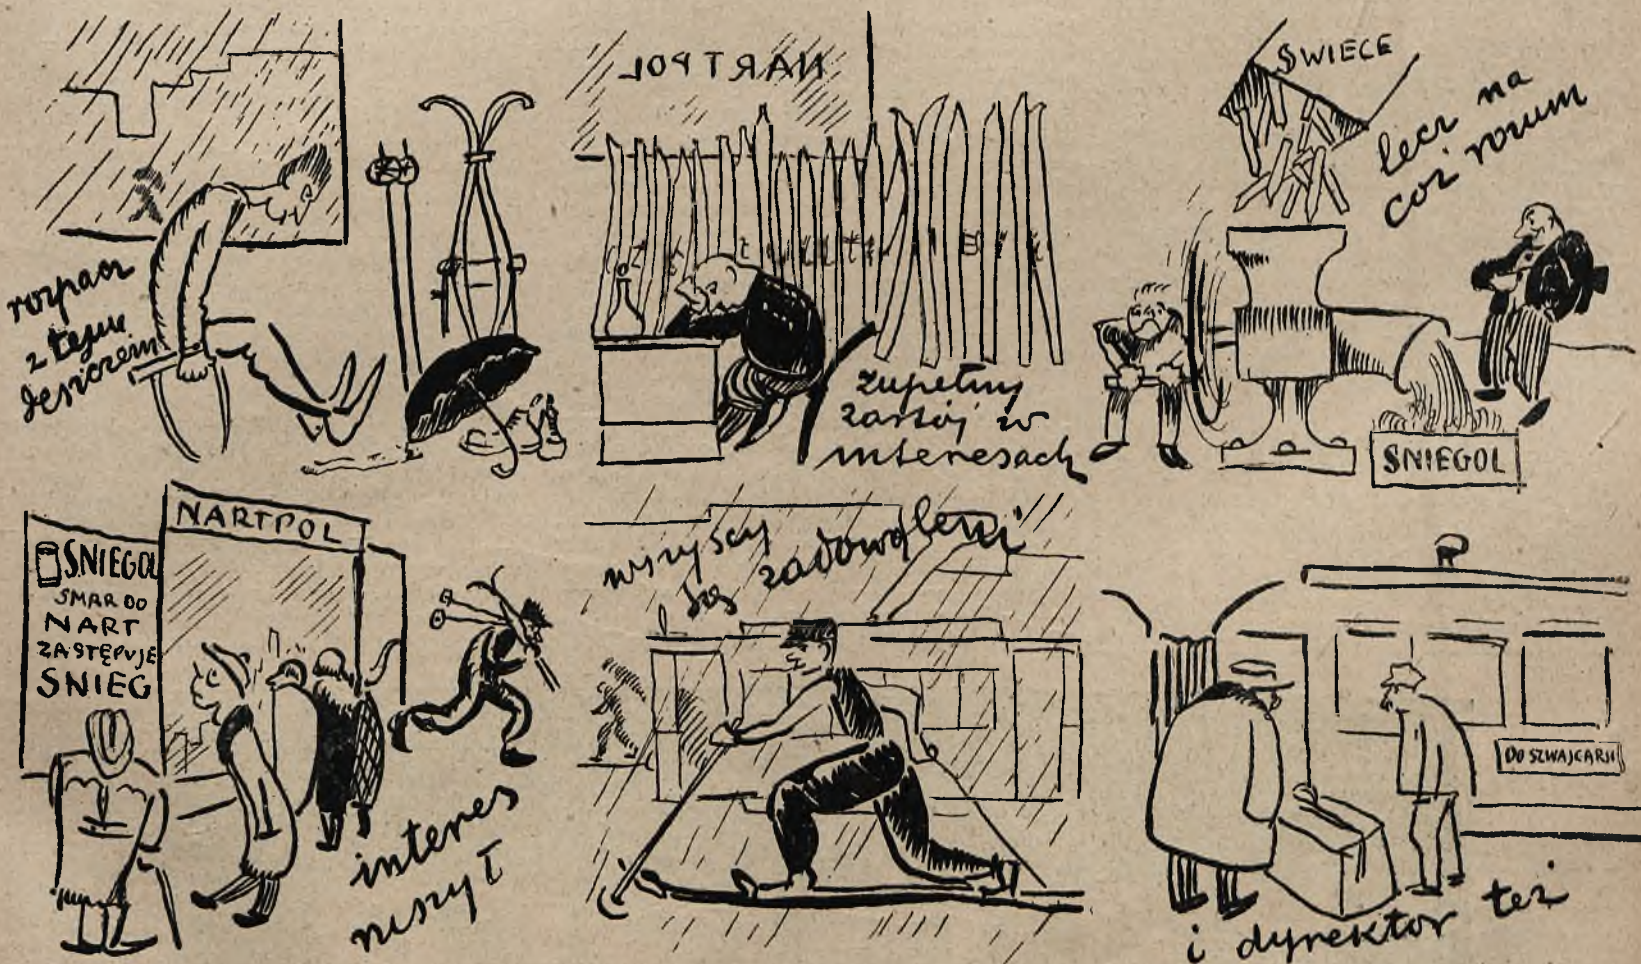 rozpacz
z tym
deszczem
NARTPOL
zupełny
zastój w
interesach
ŚWIECE
lecz na
coż rozum
ŚNIEGOL
NARTPOL
ŚNIEGOL
SMAR DO
NART
ZASTĘPUJE
ŚNIEG
interes
ruszył
wszyscy
są zadowoleni
DO SZWAJCARJI
i dyrektor też